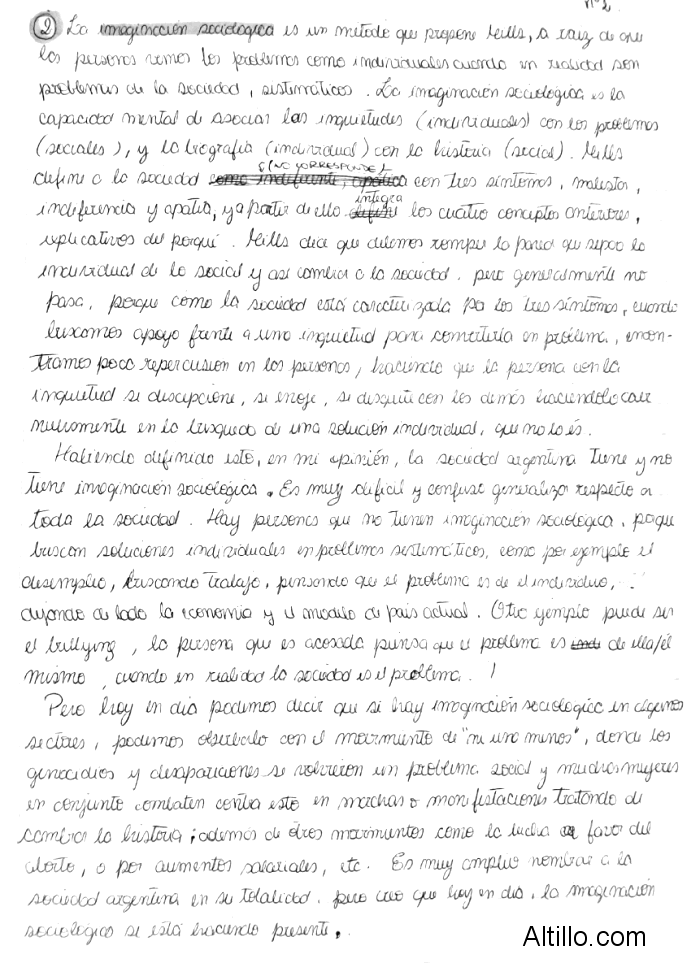 nº2
② La imaginación sociologica es un metodo que propone Mills, a raiz de que
las personas vemos los problemas como individuales cuando en realidad son
problemas de la sociedad, sistemáticos. La imaginación sociológica es la
capacidad mental de asociar las inquietudes (individuales) con los problemas
(sociales), y la biografía (individual) con la historia (social). Mills
(NO CORRESPONDE)
define a la sociedad como indiferente, apática con tres síntomas, malestar,
integra
indiferencia y apatia, y a partir de ello define los cuatro conceptos anteriores,
explicativos del porqué. Mills dice que debemos romper la pared que separa lo
individual de lo social y así cambiar a la sociedad. pero generalmente no
pasa, porque como la sociedad está caracterizada por los tres síntomas, cuando
buscamos apoyo frente a una inquietud para convertirla en problema, encon-
tramos poca repercusion en las personas, haciendo que la persona con la
inquietud se decepcione, se enoje, se desquite con los demás haciendolo caer
nuevamente en la busqueda de una solución individual, que no lo es.
Habiendo definido esto, en mi opinión, la sociedad argentina tiene y no
tiene imaginación sociológica. Es muy dificil y confuso generalizar respecto a
toda la sociedad. Hay personas que no tienen imaginación sociológica, porque
buscan soluciones individuales en problemas sistemáticos, como por ejemplo el
desempleo, buscando trabajo, pensando que el problema es de el individuo,
dejando de lado la economia y el modelo de país actual. Otro ejemplo puede ser
el bullying, la persona que es acosada piensa que el problema es de ella/él
mismo, cuando en realidad la sociedad es el problema.
Pero hoy en dia podemos decir que si hay imaginación sociológica en algunos
sectores, podemos observarlo con el movimiento de "ni una menos", donde los
genocidios y desapariciones se volvieron un problema social y muchas mujeres
en conjunto combaten contra esto en marchas o manifestaciones tratando de
cambiar la historia; ademas de otros movimientos como la lucha a favor del
aborto, o por aumentos salariales, etc. Es muy amplio nombrar a la
sociedad argentina en su totalidad, pero creo que hoy en dia, la imaginación
sociologica se está haciendo presente.
Altillo.com